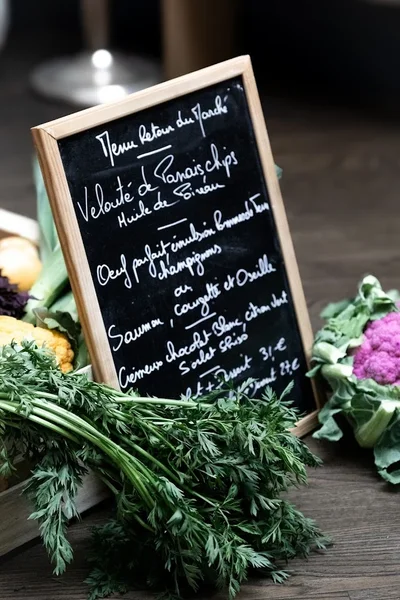 Menu Retour du Marché
Velouté de Panais chips
Huile de Sureau
Oeuf parfait émulsion Pommes de Terre
champignons
ou
Saumon, courgette et Oseille
Crémeux chocolat Blanc, citron
Sorbet
Dessert 31€